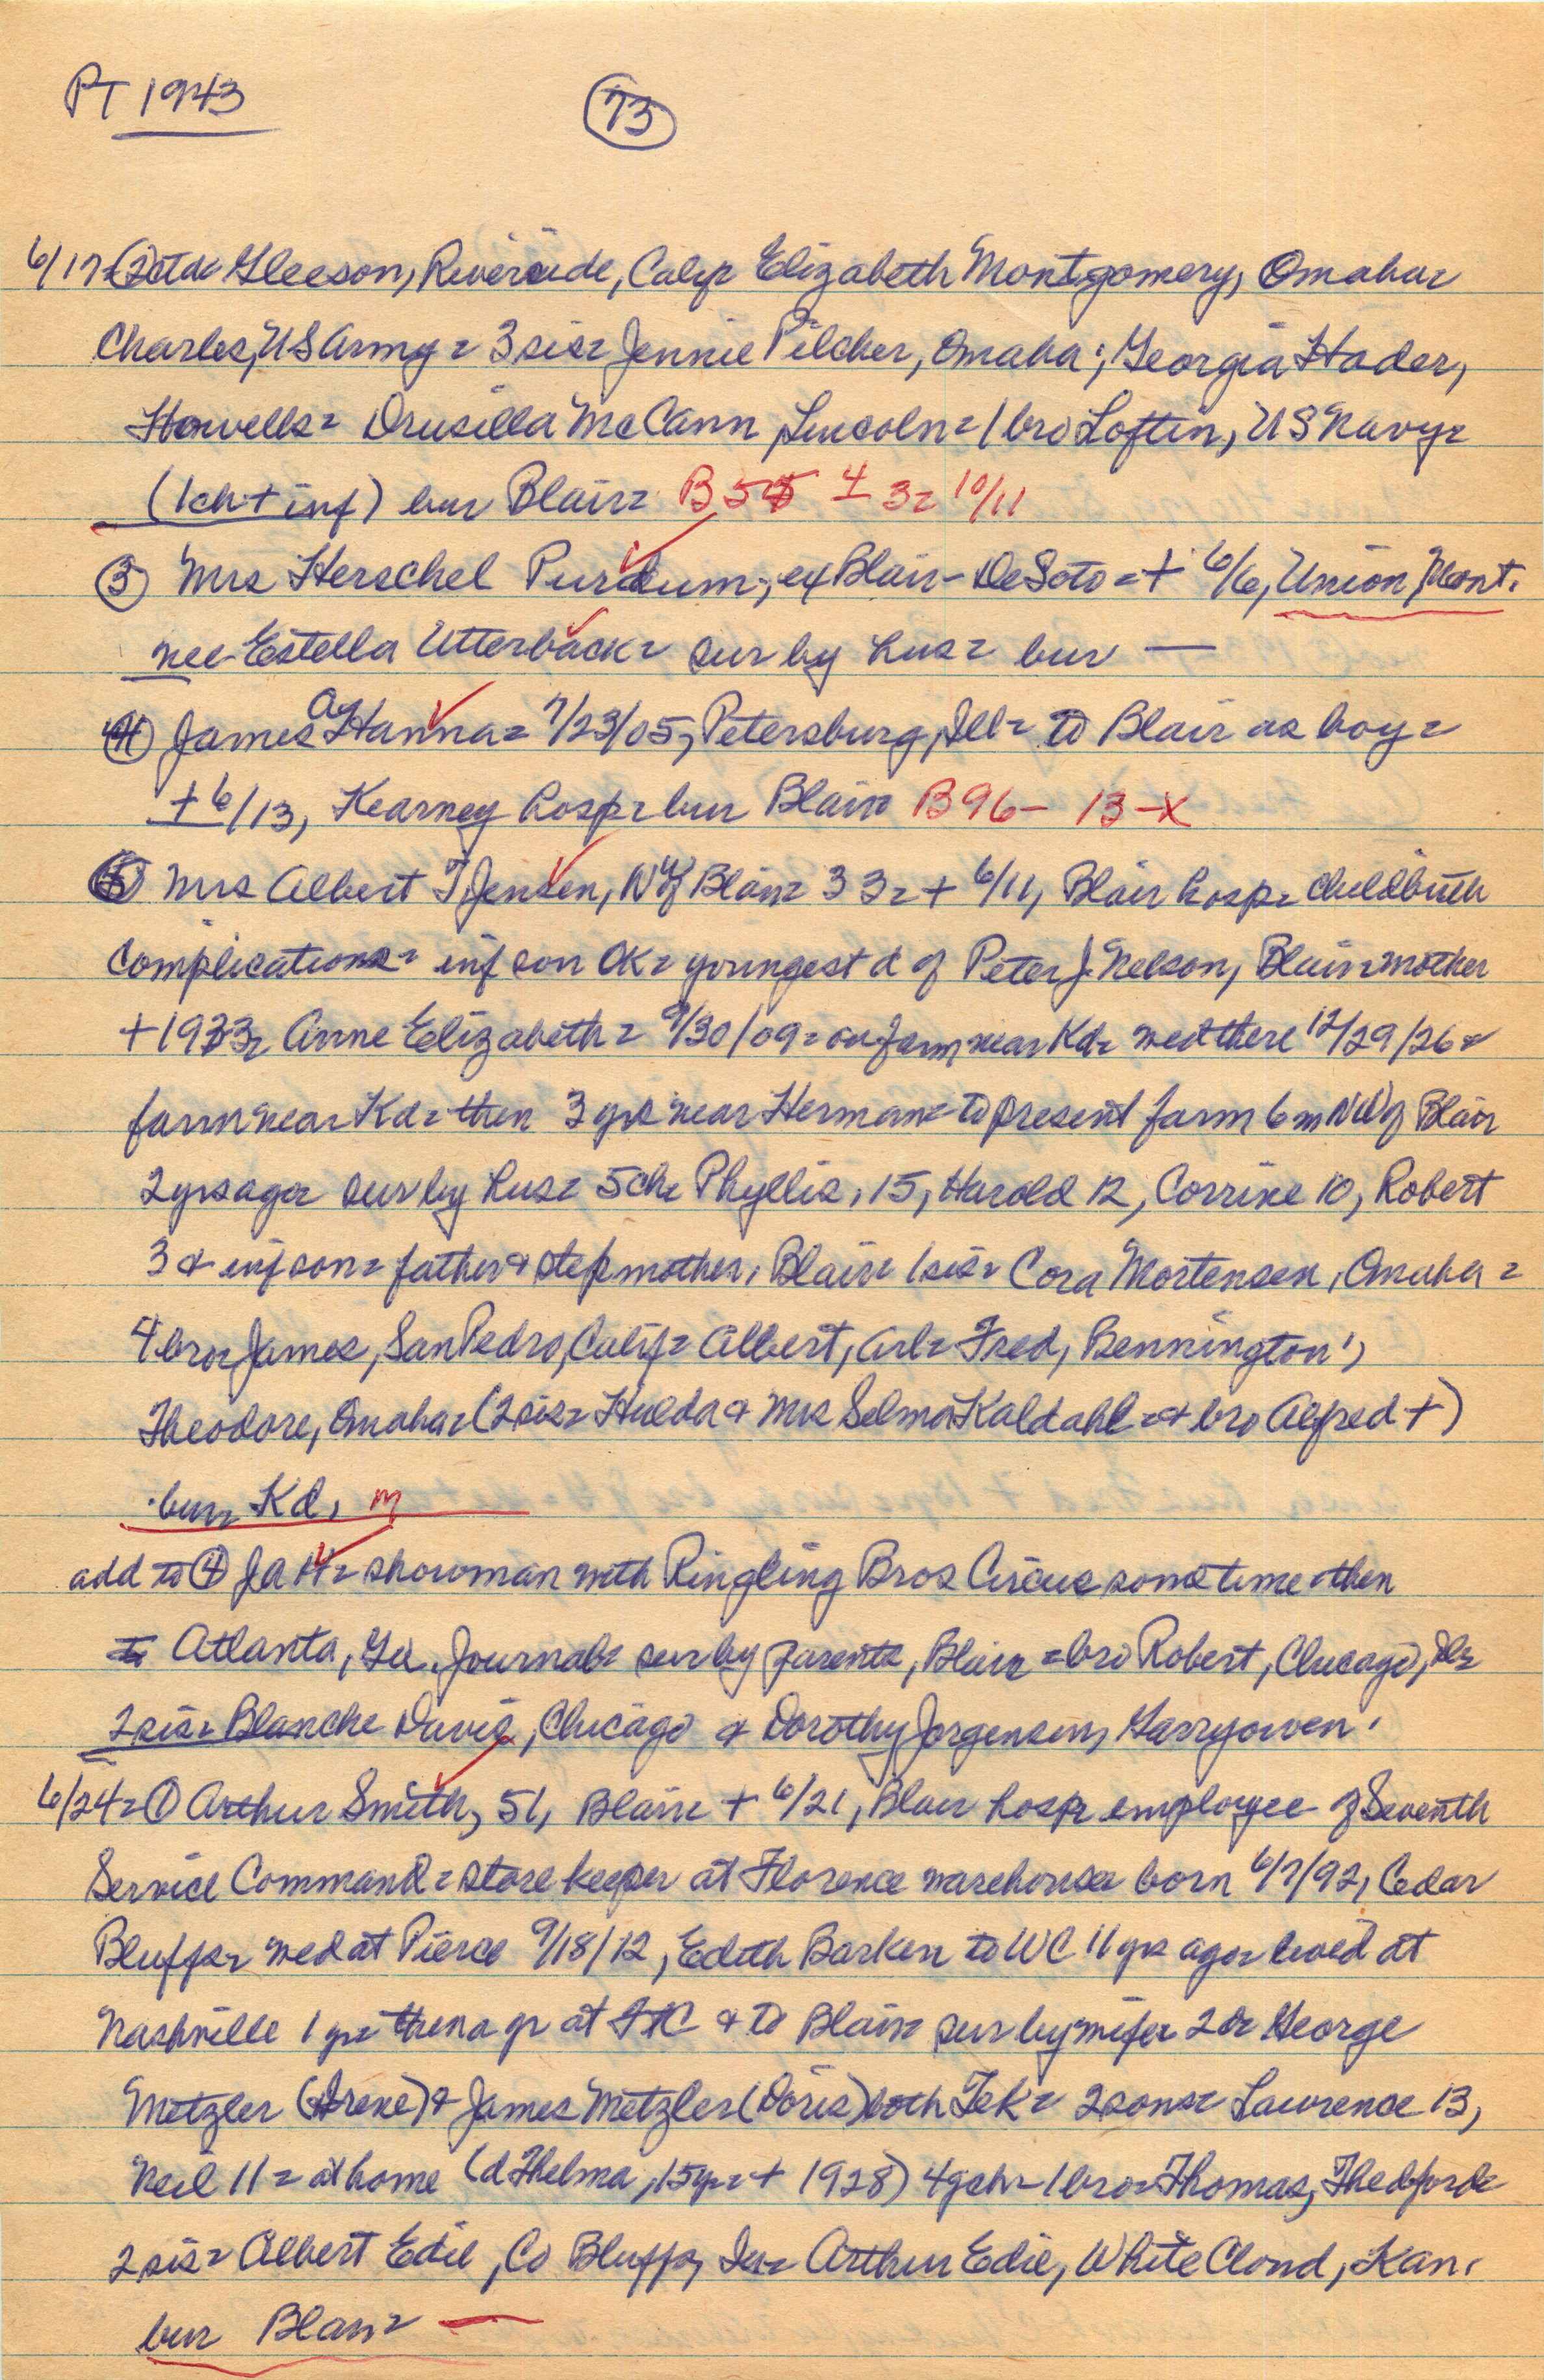 PT 1943
73
6/17 = (2) ctd = Gleeson, Riverside, Calif = Elizabeth Montgomery, Omaha =
Charles, US Army = 3 sis = Jennie Pilcher, Omaha; Georgia Hader,
Howells = Drusilla McCann, Lincoln = 1 bro Loftin, US Navy =
(1 ch + inf) bur Blair = B 54 3 = 10/11
(3) Mrs Herschel Purdum, ex Blair - DeSoto = + 6/6, Union, Mont.
nee Estella Utterback = sur by hus = bur —
(4) James Ay Hanna = 7/23/05, Petersburg, Ill = to Blair as boy =
+ 6/13, Kearney hosp = bur Blair B96 - 13 - X
(5) Mrs Albert T Jensen, NW of Blair = 33 = + 6/11, Blair hosp = childbirth
complications = inf son OK = youngest d of Peter J. Nelson, Blair = mother
+ 1933 = Anne Elizabeth = 9/30/09 = on farm near Kd = wed there 12/29/26 =
farm near Kd = then 3 yrs near Herman = to present farm 6 m NW of Blair
2 yrs ago = sur by hus = 5 ch = Phyllis, 15, Harold 12, Corrine 10, Robert
3 & inf son = father & stepmother, Blair = 1 sis = Cora Mortensen, Omaha =
4 bro = James, San Pedro, Calif = Albert, Arl = Fred, Bennington;
Theodore, Omaha = (2 sis = Hulda & Mrs Selma Kaldahl = & bro Alfred +)
bur = Kd, m
add to (4) JAH = showman with Ringling Bros Circus sometime = then
to Atlanta, Ga. Journal = sur by parents, Blair = bro Robert, Chicago, Ill =
2 sis = Blanche Davis, Chicago & Dorothy Jorgensen, Garryowen.
6/24 = (1) Arthur Smith, 51, Blair = + 6/21, Blair hosp = employee of Seventh
Service Command = store keeper at Florence warehouse = born 6/7/92, Cedar
Bluffs = wed at Pierce 9/18/12, Edith Barken = to WC 11 yrs ago = lived at
Nashville 1 yr = then a yr at FtC & to Blair = sur by wife = 2 d = George
Metzler (Irene) & James Metzler (Doris) both Tek = 2 sons = Lawrence 13,
Neil 11 = at home (d Thelma, 15 yr = + 1928) 4 gch = 1 bro = Thomas, Thedford =
2 sis = Albert Edie, Co Bluffs, Ia = Arthur Edie, White Cloud, Kan.
bur Blair = —